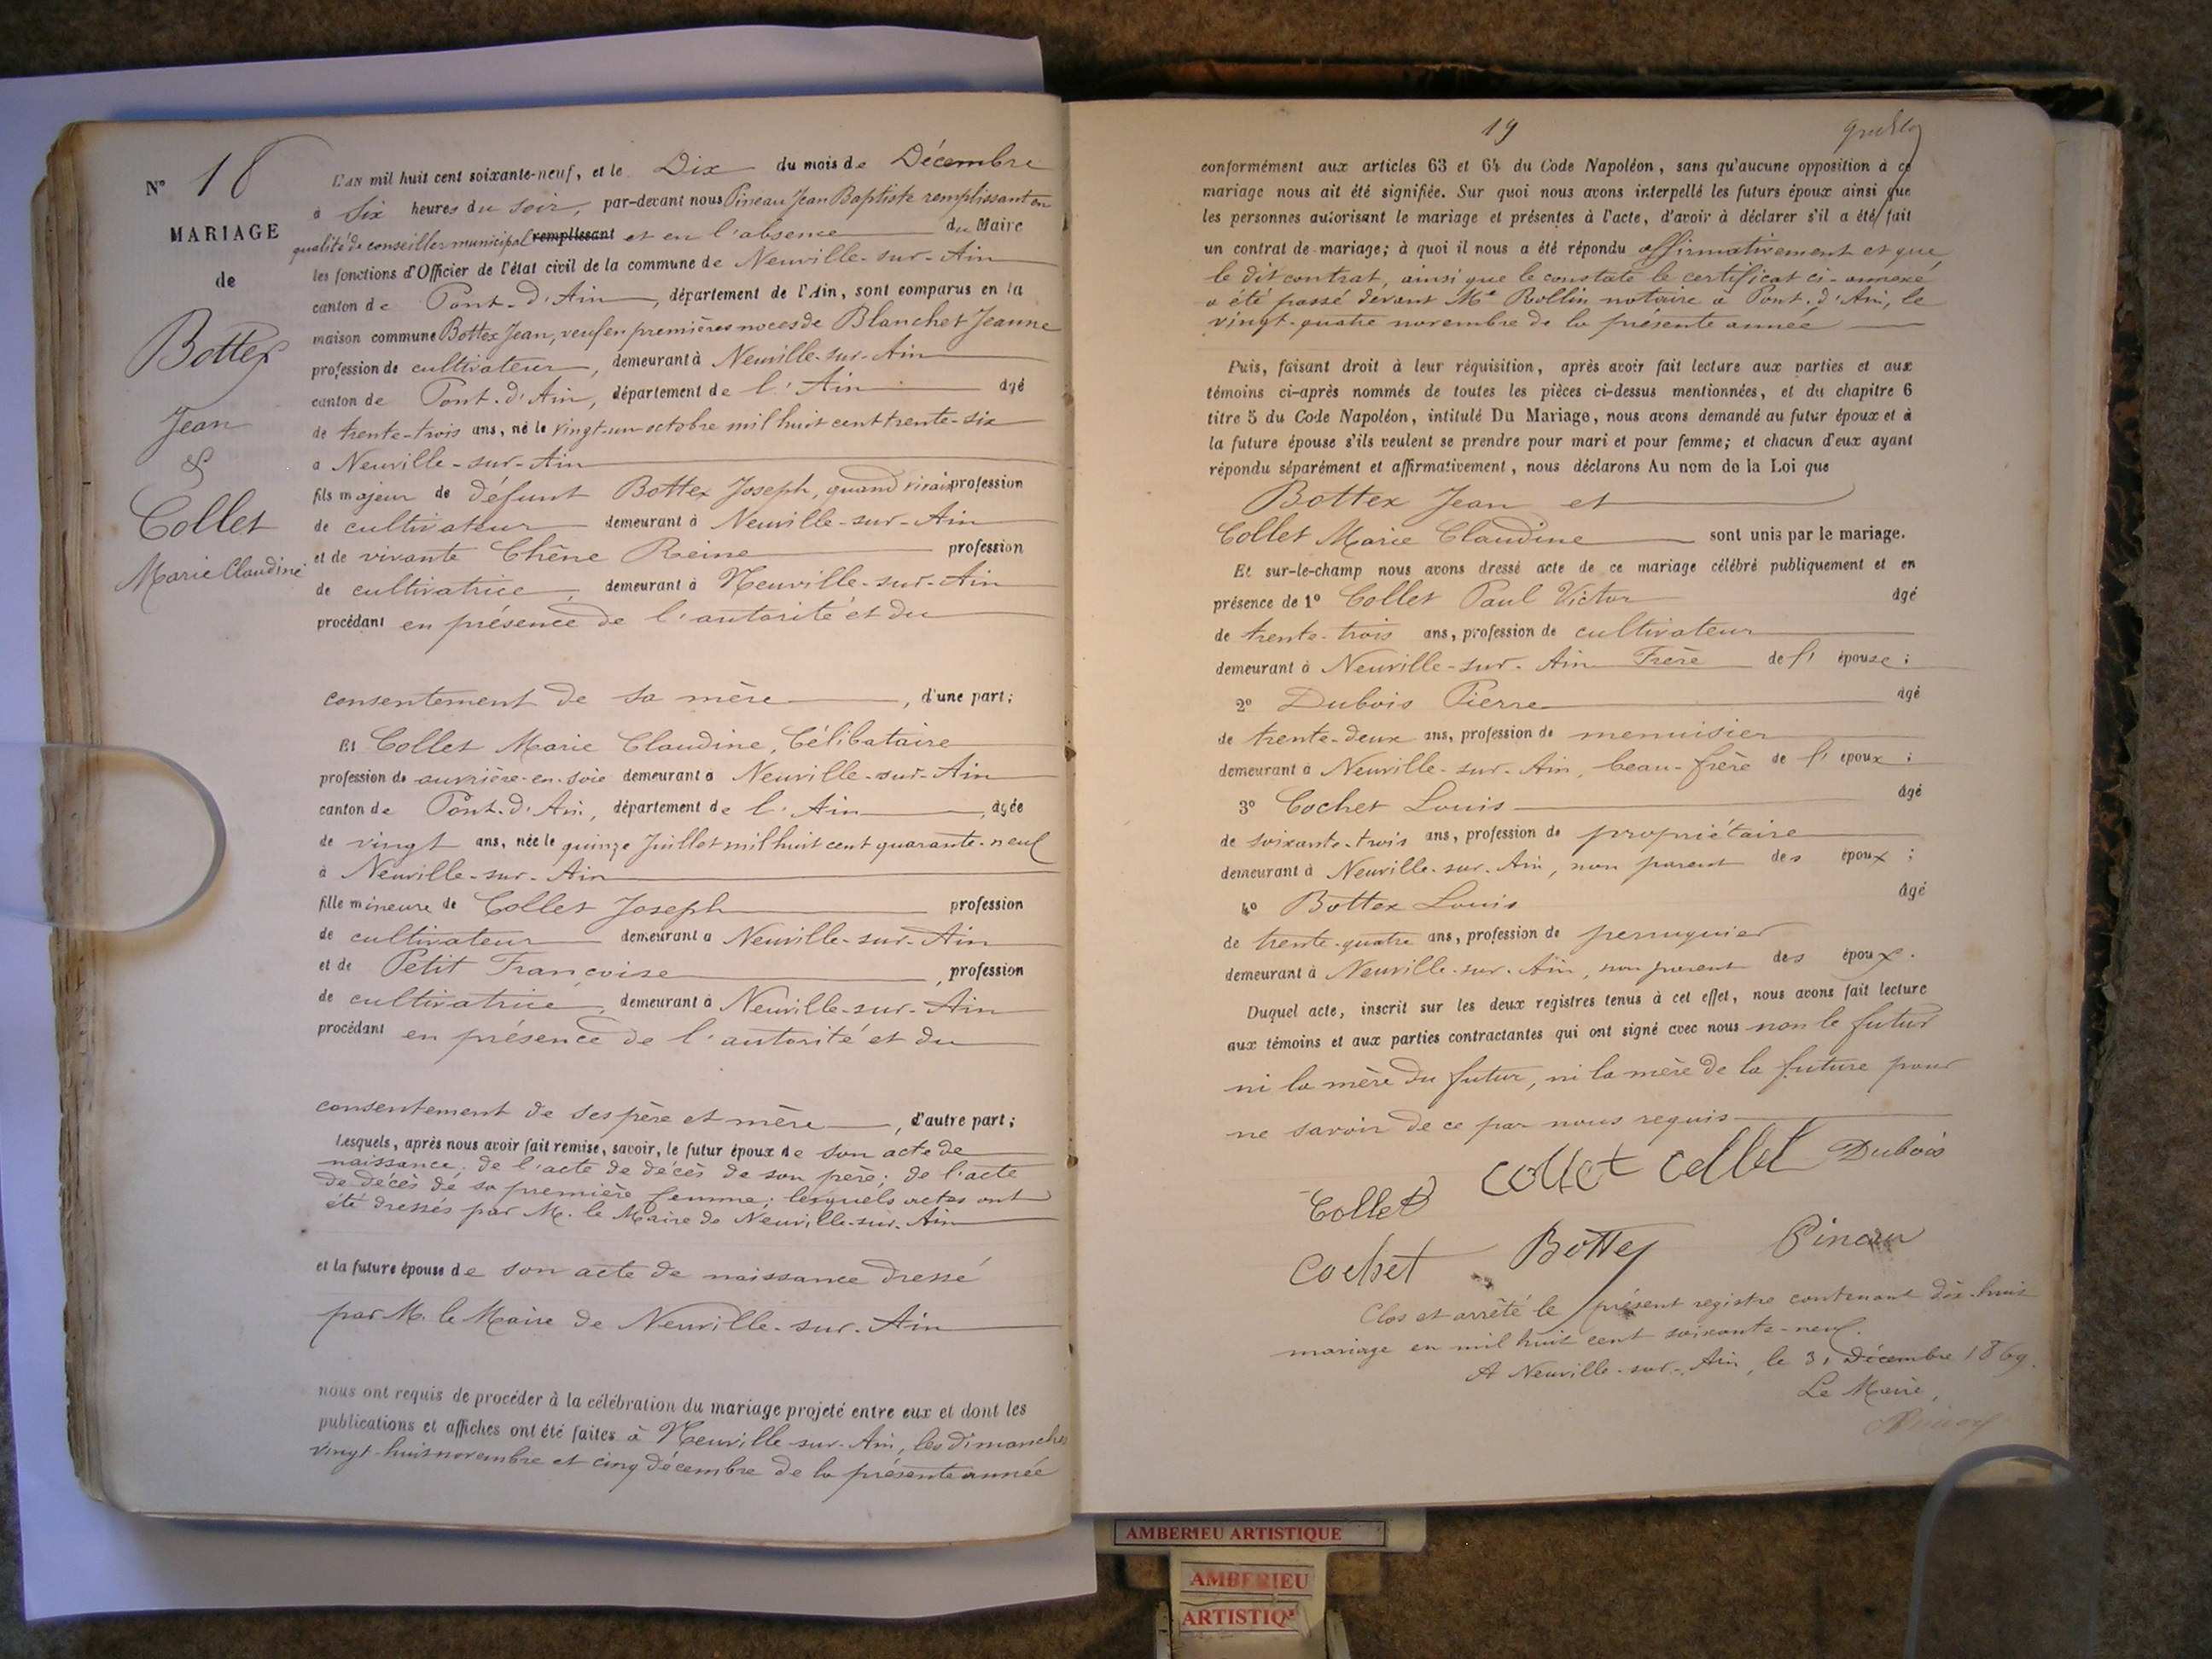 N° 18
MARIAGE
de
Bottex
Jean
&
Collet
Marie Claudine
L'AN mil huit cent soixante-neuf, et le Dix du mois de Décembre
à six heures du soir, par-devant nous Pineau Jean Baptiste remplissant en
qualité de conseiller municipal remplissant et en l'absence du Maire
les fonctions d'Officier de l'état civil de la commune de Neuville-sur-Ain
canton de Pont-d'Ain, département de l'Ain, sont comparus en la
maison commune Bottex Jean, veuf en premières noces de Blanchet Jeanne
profession de cultivateur, demeurant à Neuville-sur-Ain
canton de Pont-d'Ain, département de l'Ain âgé
de trente-trois ans, né le vingt-un octobre mil huit cent trente-six
à Neuville-sur-Ain
fils majeur de défunt Bottex Joseph, quand vivait profession
de cultivateur demeurant à Neuville-sur-Ain
et de vivante Chêne Reine profession
de cultivatrice, demeurant à Neuville-sur-Ain
procédant en présence de l'autorité et du
consentement de sa mère, d'une part;
Et Collet Marie Claudine, Célibataire
profession de ouvrière-en-soie demeurant à Neuville-sur-Ain
canton de Pont-d'Ain, département de l'Ain, âgée
de vingt ans, née le quinze Juillet mil huit cent quarante-neuf
à Neuville-sur-Ain
fille mineure de Collet Joseph profession
de cultivateur demeurant à Neuville-sur-Ain
et de Petit Françoise, profession
de cultivatrice, demeurant à Neuville-sur-Ain
procédant en présence de l'autorité et du
consentement de ses père et mère, d'autre part;
Lesquels, après nous avoir fait remise, savoir, le futur époux de son acte de
naissance; de l'acte de décès de son père; de l'acte
de décès de sa première femme; lesquels actes ont
été dressés par M. le Maire de Neuville-sur-Ain
et la future épouse de son acte de naissance dressé
par M. le Maire de Neuville-sur-Ain
nous ont requis de procéder à la célébration du mariage projeté entre eux et dont les
publications et affiches ont été faites à Neuville-sur-Ain, les dimanches
vingt-huit novembre et cinq décembre de la présente année
19
conformément aux articles 63 et 64 du Code Napoléon, sans qu'aucune opposition à ce
mariage nous ait été signifiée. Sur quoi nous avons interpellé les futurs époux ainsi que
les personnes autorisant le mariage et présentes à l'acte, d'avoir à déclarer s'il a été fait
un contrat de mariage; à quoi il nous a été répondu affirmativement et que
le dit contrat, ainsi que le constate le certificat ci-annexé
a été passé devant Me Rollin notaire à Pont-d'Ain, le
vingt-quatre novembre de la présente année
Puis, faisant droit à leur réquisition, après avoir fait lecture aux parties et aux
témoins ci-après nommés de toutes les pièces ci-dessus mentionnées, et du chapitre 6
titre 5 du Code Napoléon, intitulé Du Mariage, nous avons demandé au futur époux et à
la future épouse s'ils veulent se prendre pour mari et pour femme; et chacun d'eux ayant
répondu séparément et affirmativement, nous déclarons Au nom de la Loi que
Bottex Jean et
Collet Marie Claudine sont unis par le mariage.
Et sur-le-champ nous avons dressé acte de ce mariage célébré publiquement et en
présence de 1° Collet Paul Victor âgé
de trente-trois ans, profession de cultivateur
demeurant à Neuville-sur-Ain Frère de l'épouse;
2° Dubois Pierre âgé
de trente-deux ans, profession de menuisier
demeurant à Neuville-sur-Ain, beau-frère de l'époux;
3° Cochet Louis âgé
de soixante-trois ans, profession de propriétaire
demeurant à Neuville-sur-Ain, non parent des époux;
4° Bottex Louis âgé
de trente-quatre ans, profession de perruquier
demeurant à Neuville-sur-Ain, non parent des époux.
Duquel acte, inscrit sur les deux registres tenus à cet effet, nous avons fait lecture
aux témoins et aux parties contractantes qui ont signé avec nous non le futur
ni la mère du futur, ni la mère de la future pour
ne savoir de ce par nous requis
Collet collet collet Dubois
Cochet Bottex Pineau
Clos et arrêté le présent registre contenant dix-huit
mariage en mil huit cent soixante-neuf.
A Neuville-sur-Ain, le 31 Décembre 1869.
Le Maire,
AMBERIEU ARTISTIQUE
AMBERIEU
ARTISTIQ